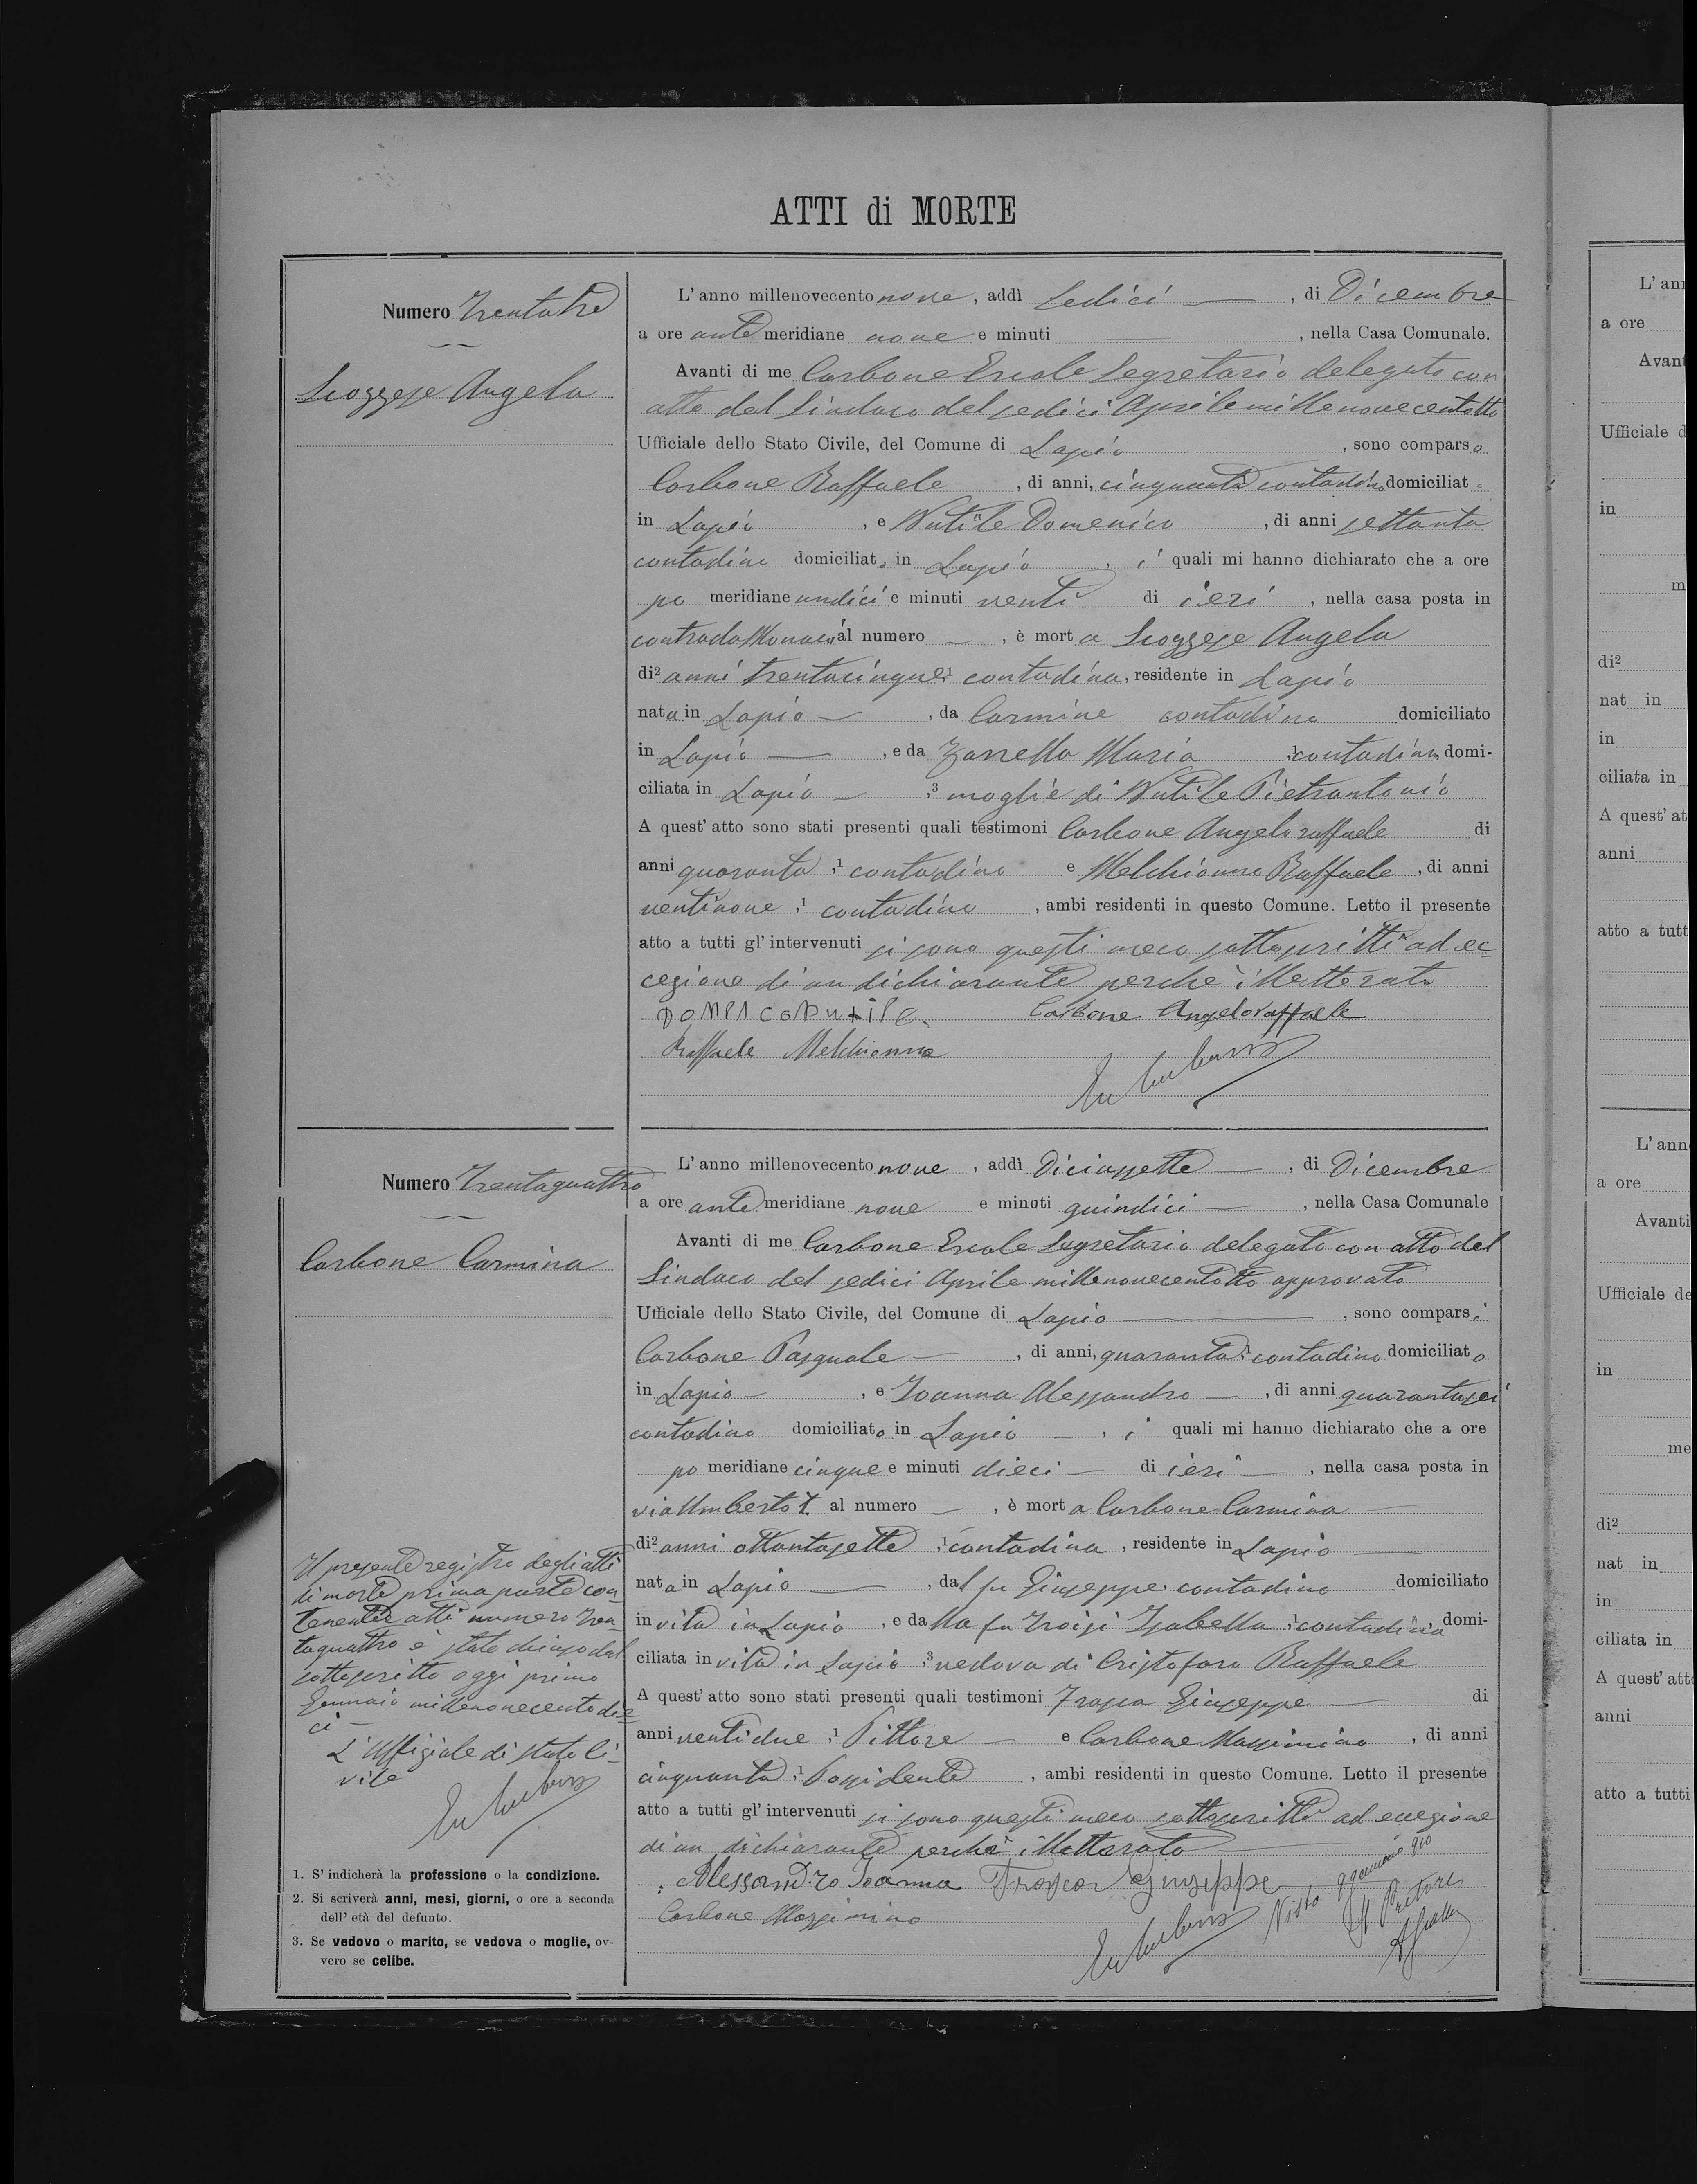 ATTI di MORTE
Numero Trentatre
Scozzese Angela
L'anno millenovecento nove, addì Sedici —, di Dicembre
a ore ante meridiane nove e minuti —, nella Casa Comunale.
Avanti di me Carbone Ercole Segretario delegato con
atto del Sindaco del sedici Aprile millenovecentotto
Ufficiale dello Stato Civile, del Comune di Lapio, sono comparso
Carbone Raffaele, di anni, cinquanta contadino domiciliat
in Lapio, e Nutile Domenico, di anni settanta
contadino domiciliato in Lapio, i quali mi hanno dichiarato che a ore
po meridiane undici e minuti venti di ieri, nella casa posta in
contrada Monaci al numero —, è morta Scozzese Angela
di² anni trentacinque,¹ contadina, residente in Lapio
nata in Lapio —, da Carmine contadino domiciliato
in Lapio —, e da Zarrella Maria ,¹ contadina domi-
ciliata in Lapio — ,³ moglie di Nutile Pietrantonio
A quest'atto sono stati presenti quali testimoni Carbone Angeloraffaele di
anni quaranta ,¹ contadino e Melchionna Raffaele, di anni
ventinove ,¹ contadino, ambi residenti in questo Comune. Letto il presente
atto a tutti gl'intervenuti si sono questi meco sottoscritti ad ec-
cezione di un dichiarante perchè illetterato
Carbone Angeloraffaele
Raffaele Melchionna
Numero Trentaquattro
Carbone Carmina
L'anno millenovecento nove, addì Diciassette —, di Dicembre
a ore ante meridiane nove e minuti quindici —, nella Casa Comunale
Avanti di me Carbone Ercole Segretario delegato con atto del
Sindaco del sedici Aprile millenovecentotto approvato
Ufficiale dello Stato Civile, del Comune di Lapio —, sono comparsi
Carbone Pasquale —, di anni, quaranta ,¹ contadino domiciliato
in Lapio —, e Ioanna Alessandro —, di anni quarantasei
contadino domiciliato in Lapio —, i quali mi hanno dichiarato che a ore
po meridiane cinque e minuti dieci — di ieri —, nella casa posta in
via Umberto I al numero —, è morta Carbone Carmina —
di² anni ottantasette ,¹ contadina, residente in Lapio —
nata in Lapio —, dal fu Giuseppe contadino domiciliato
in vita in Lapio, e dalla fu Troisi Isabella ,¹ contadina, domi-
ciliata in vita in Lapio ,³ vedova di Cristofaro Raffaele
A quest'atto sono stati presenti quali testimoni Frasca Giuseppe — di
anni ventidue ,¹ Pittore — e Carbone Massimino, di anni
cinquanta ,¹ Possidente, ambi residenti in questo Comune. Letto il presente
atto a tutti gl'intervenuti si sono questi meco sottoscritti ad eccezione
di un dichiarante perchè illetterato —
Alessandro Ioanna Frasca Giuseppe
Carbone Massimino
Visto 9 gennaio 910
Il Pretore
Il presente registro degli atti
di morte prima parte con-
tenente atti numero tren-
taquattro è stato chiuso dal
sottoscritto oggi primo
Gennaio millenovecentodie-
ci —
L'Uffiziale di stato Ci-
vile
1. S'indicherà la professione o la condizione.
2. Si scriverà anni, mesi, giorni, o ore a seconda
dell'età del defunto.
3. Se vedovo o marito, se vedova o moglie, ov-
vero se celibe.
L'an
a ore
Avant
Ufficiale d
in
m
di²
nat in
in
ciliata in
A quest'at
anni
atto a tutt
L'ann
a ore
Avanti
Ufficiale de
in
me
di²
nat in
in
ciliata in
A quest'att
anni
atto a tutti